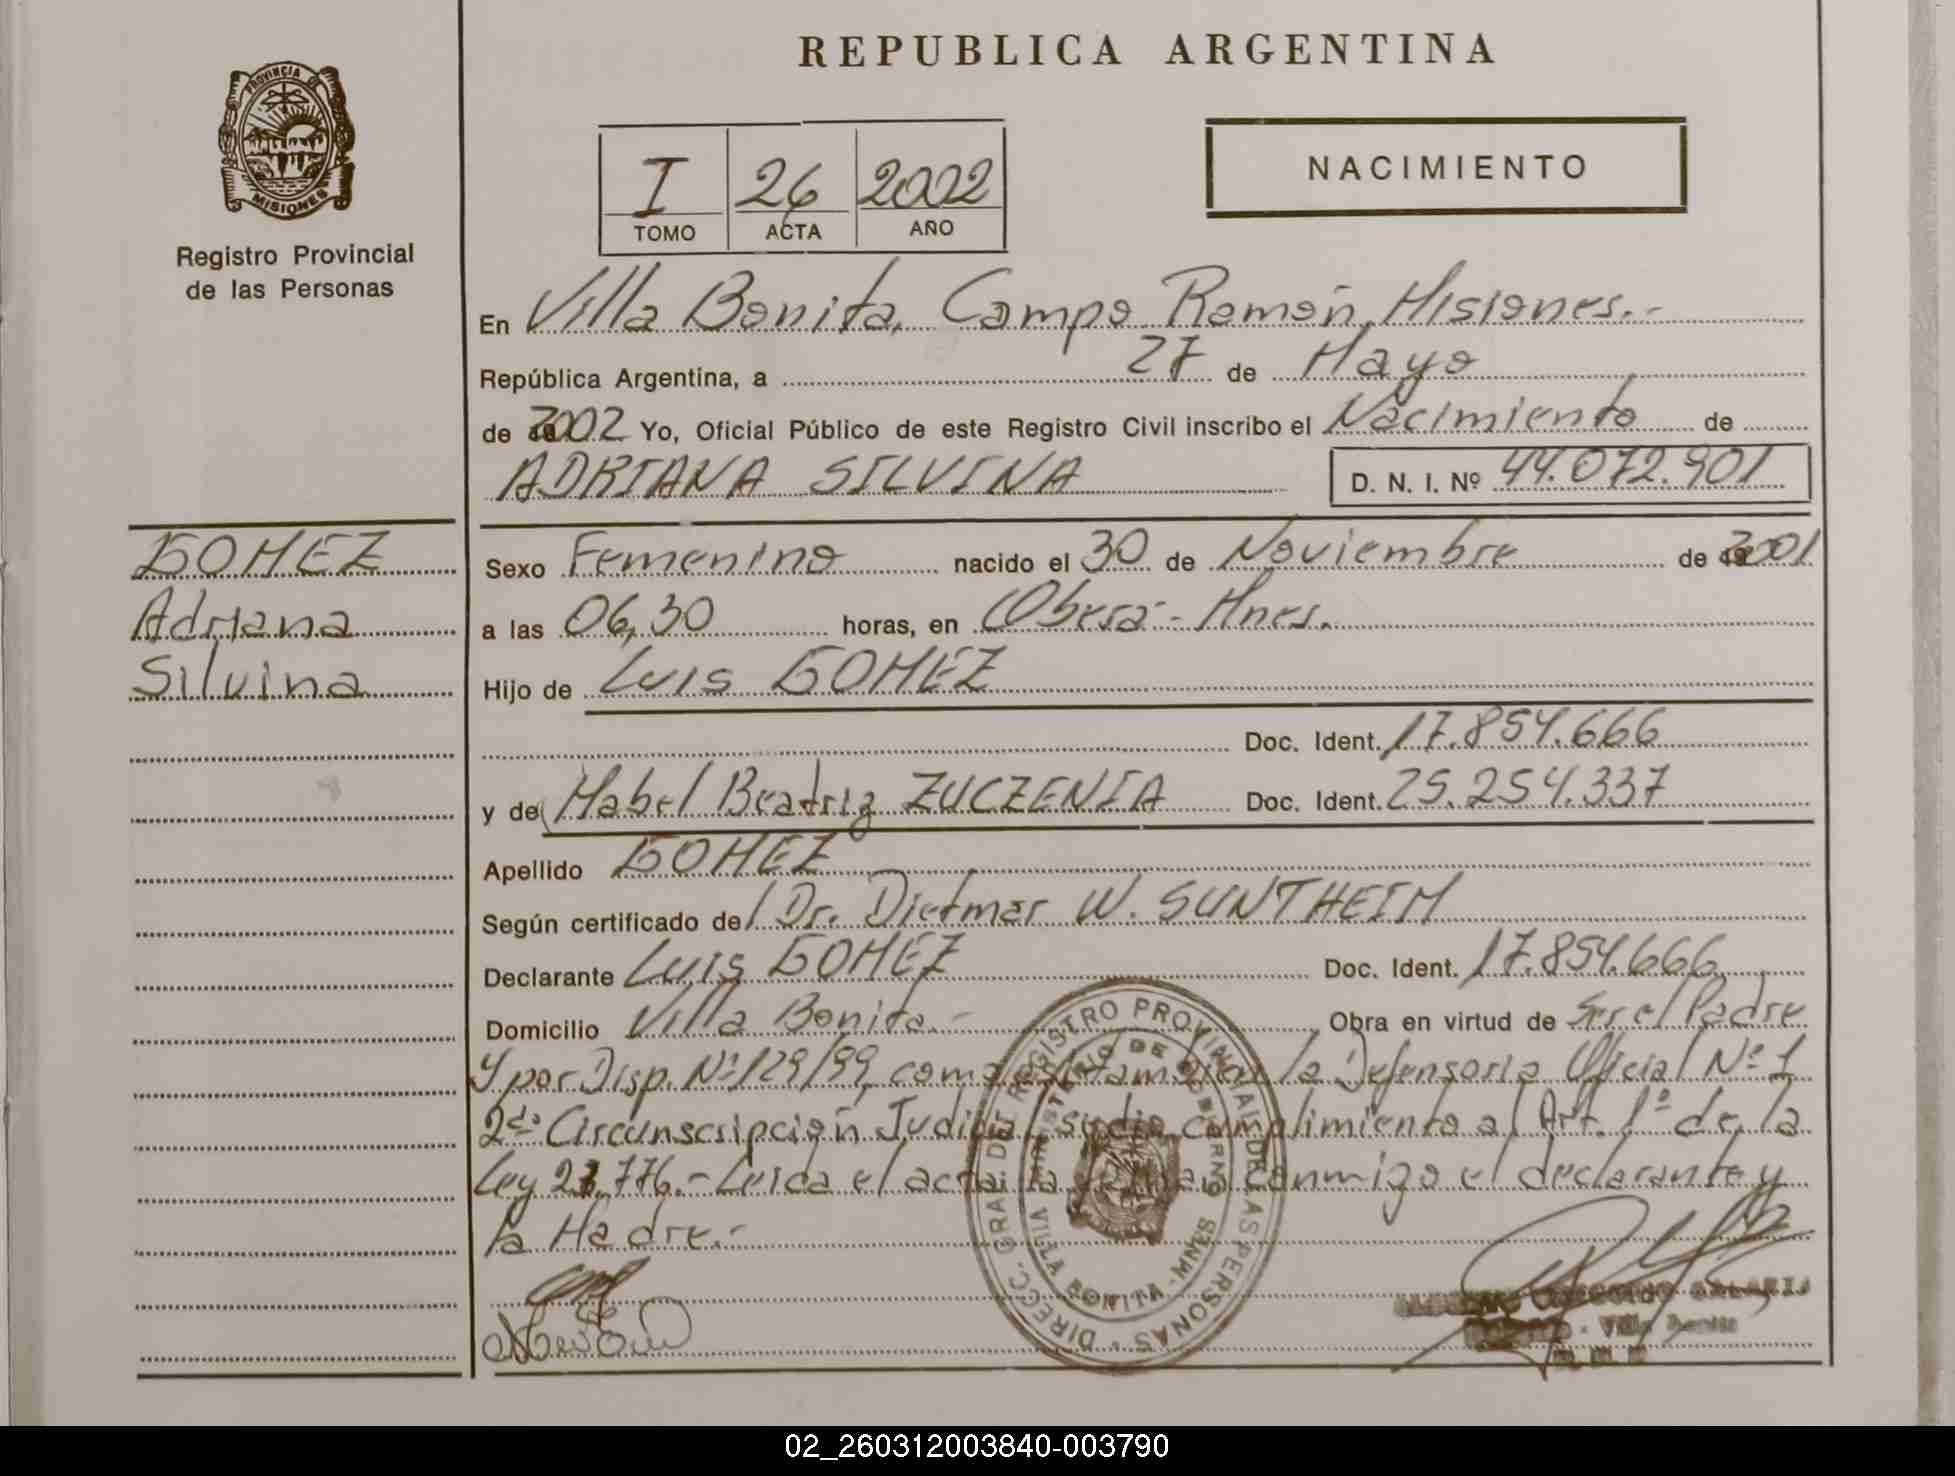 REPUBLICA ARGENTINA
PROVINCIA D
MISIONES
Registro Provincial
de las Personas
I 26 2002
TOMO ACTA AÑO
NACIMIENTO
En Villa Bonita, Campo Ramón, Misiones.-
República Argentina, a 27 de Mayo
de 2002 Yo, Oficial Público de este Registro Civil inscribo el Nacimiento de
ADRIANA SILVINA D. N. I. Nº 44.072.901
GOMEZ
Adriana
Silvina
Sexo Femenino nacido el 30 de Noviembre de 2001
a las 06,30 horas, en Oberá - Mnes.
Hijo de Luis GOMEZ
Doc. Ident. 17.854.666
y de Mabel Beatriz ZUCZENIA Doc. Ident. 25.254.337
Apellido GOMEZ
Según certificado del Dr. Dietmar W. SUNTHEIM
Declarante Luis GOMEZ Doc. Ident. 17.854.666
Domicilio Villa Bonita.- Obra en virtud de Ser el Padre
y por Disp. Nº 129/99, como la Defensoria Oficial Nº 1
2da Circunscripción Judicial, se dio cumplimiento al Art. 1º de la
Ley 23.776.- Leida el acta, la firman conmigo el declarante y
la Madre.-
DIRECC. GRAL DEL REGISTRO PROVINCIAL DE LAS PERSONAS
MINISTERIO DE GOBIERNO
VILLA BONITA - MNES
Villa Bonita
02_260312003840-003790